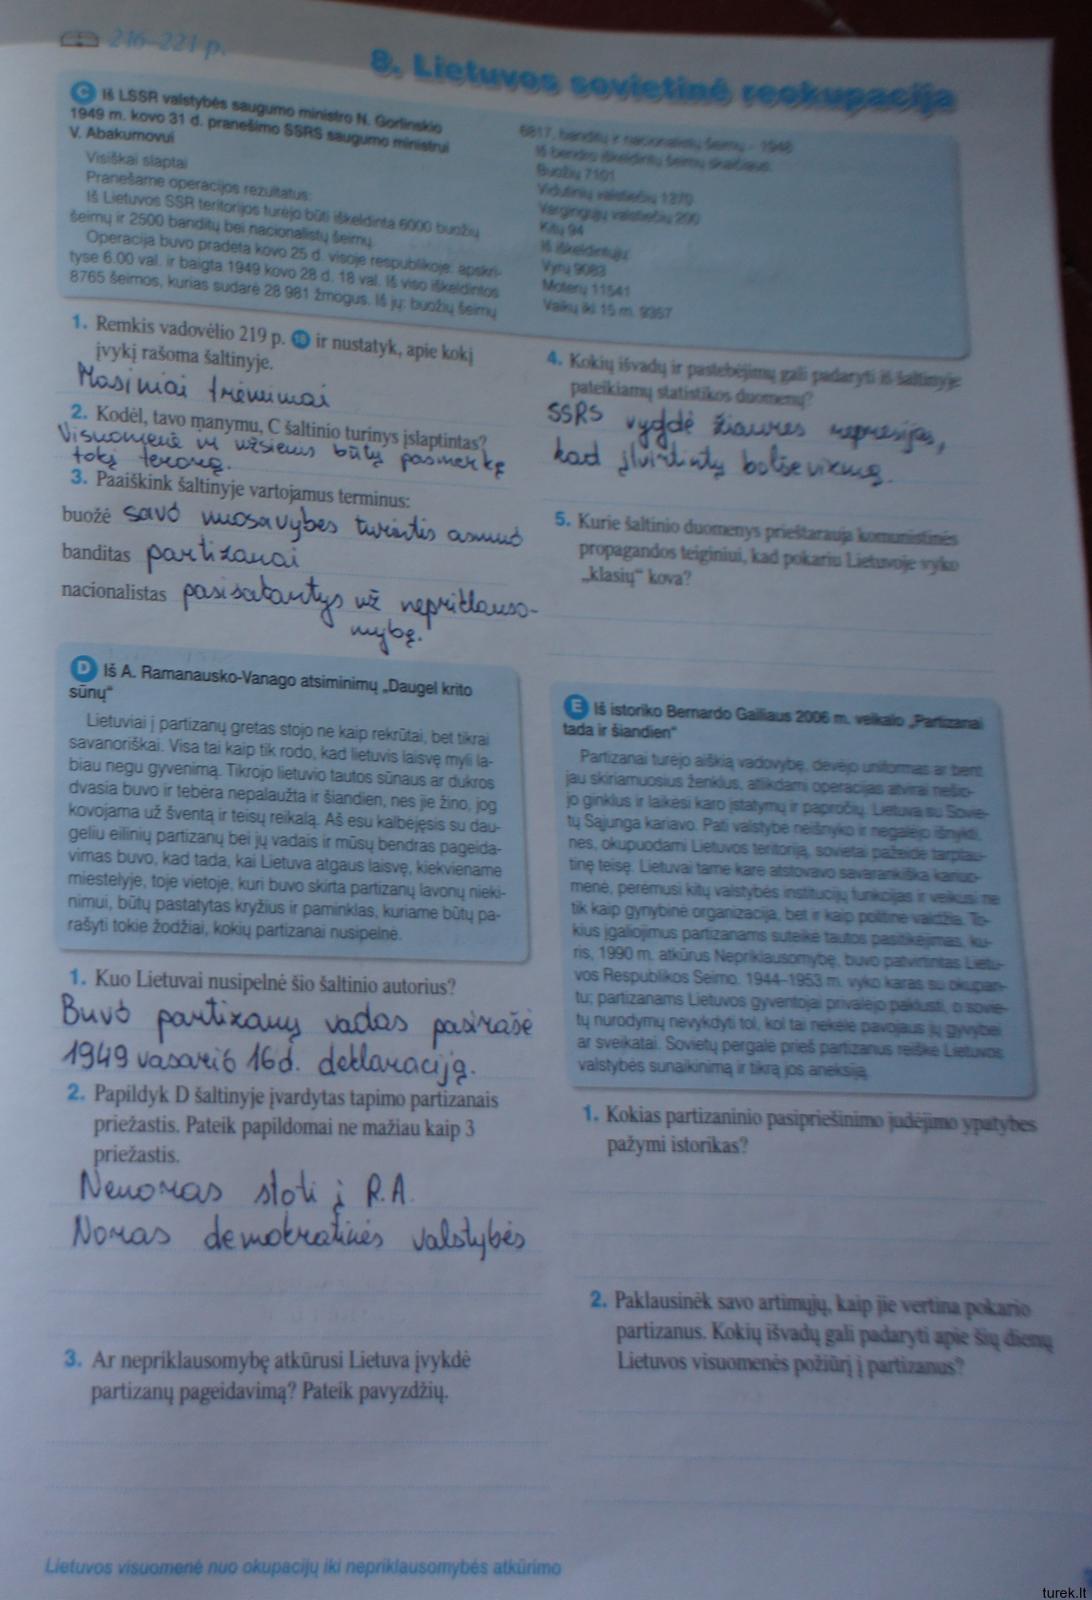 216–221 p.
8. Lietuvos sovietinė reokupacija
C Iš LSSR valstybės saugumo ministro N. Gorlinskio
1949 m. kovo 31 d. pranešimo SSRS saugumo ministrui
V. Abakumovui
Visiškai slaptai
Pranešame operacijos rezultatus:
Iš Lietuvos SSR teritorijos turėjo būti iškeldinta 6000 buožių
šeimų ir 2500 banditų bei nacionalistų šeimų.
Operacija buvo pradėta kovo 25 d. visoje respublikoje: apskri-
tyse 6.00 val. ir baigta 1949 kovo 28 d. 18 val. Iš viso iškeldintos
8765 šeimos, kurias sudarė 28 981 žmogus. Iš jų: buožių šeimų
6817, banditų ir nacionalistų šeimų – 1948
Iš bendro iškeldintų šeimų skaičiaus:
Buožių 7101
Vidutinių valstiečių 1370
Vargingųjų valstiečių 200
Kitų 94
Iš iškeldintųjų:
Vyrų 9083
Moterų 11541
Vaikų iki 15 m. 9357
1. Remkis vadovėlio 219 p. 18 ir nustatyk, apie kokį
įvykį rašoma šaltinyje.
Masiniai trėmimai
2. Kodėl, tavo manymu, C šaltinio turinys įslaptintas?
Visuomenė ir užsienis būtų pasmerkę
tokį terorą.
3. Paaiškink šaltinyje vartojamus terminus:
buožė savo nuosavybės turintis asmuo
banditas partizanai
nacionalistas pasisakantys už nepriklauso-
mybę.
4. Kokių išvadų ir pastebėjimų gali padaryti iš šaltinyje
pateikiamų statistikos duomenų?
SSRS vygdė žiaures represijas,
kad įlvirtintų bolševizmą.
5. Kurie šaltinio duomenys prieštarauja komunistinės
propagandos teiginiui, kad pokariu Lietuvoje vyko
„klasių“ kova?
D Iš A. Ramanausko-Vanago atsiminimų „Daugel krito
sūnų“
Lietuviai į partizanų gretas stojo ne kaip rekrūtai, bet tikrai
savanoriškai. Visa tai kaip tik rodo, kad lietuvis laisvę myli la-
biau negu gyvenimą. Tikrojo lietuvio tautos sūnaus ar dukros
dvasia buvo ir tebėra nepalaužta ir šiandien, nes jie žino, jog
kovojama už šventą ir teisų reikalą. Aš esu kalbėjęsis su dau-
geliu eilinių partizanų bei jų vadais ir mūsų bendras pageida-
vimas buvo, kad tada, kai Lietuva atgaus laisvę, kiekviename
miestelyje, toje vietoje, kuri buvo skirta partizanų lavonų nieki-
nimui, būtų pastatytas kryžius ir paminklas, kuriame būtų pa-
rašyti tokie žodžiai, kokių partizanai nusipelnė.
1. Kuo Lietuvai nusipelnė šio šaltinio autorius?
Buvo partizanų vadas pasirašė
1949 vasario 16 d. deklaraciją.
2. Papildyk D šaltinyje įvardytas tapimo partizanais
priežastis. Pateik papildomai ne mažiau kaip 3
priežastis.
Nenoras stoti į R.A.
Noras demokratinės valstybės
3. Ar nepriklausomybę atkūrusi Lietuva įvykdė
partizanų pageidavimą? Pateik pavyzdžių.
E Iš istoriko Bernardo Gailiaus 2006 m. veikalo „Partizanai
tada ir šiandien“
Partizanai turėjo aiškią vadovybę, dėvėjo uniformas ar bent
jau skiriamuosius ženklus, atlikdami operacijas atvirai nešio-
jo ginklus ir laikėsi karo įstatymų ir papročių. Lietuva su Sovie-
tų Sąjunga kariavo. Pati valstybė neišnyko ir negalėjo išnykti,
nes, okupuodami Lietuvos teritoriją, sovietai pažeidė tarptau-
tinę teisę. Lietuvai tame kare atstovavo savarankiška kariuo-
menė, perėmusi kitų valstybės institucijų funkcijas ir veikusi ne
tik kaip gynybinė organizacija, bet ir kaip politinė valdžia. To-
kius įgaliojimus partizanams suteikė tautos pasitikėjimas, ku-
ris, 1990 m. atkūrus Nepriklausomybę, buvo patvirtintas Lietu-
vos Respublikos Seimo. 1944–1953 m. vyko karas su okupan-
tu; partizanams Lietuvos gyventojai privalėjo paklusti, o sovie-
tų nurodymų nevykdyti tol, kol tai nekėlė pavojaus jų gyvybei
ar sveikatai. Sovietų pergalė prieš partizanus reiškė Lietuvos
valstybės sunaikinimą ir tikrą jos aneksiją.
1. Kokias partizaninio pasipriešinimo judėjimo ypatybes
pažymi istorikas?
2. Paklausinėk savo artimųjų, kaip jie vertina pokario
partizanus. Kokių išvadų gali padaryti apie šių dienų
Lietuvos visuomenės požiūrį į partizanus?
Lietuvos visuomenė nuo okupacijų iki nepriklausomybės atkūrimo
turek.lt